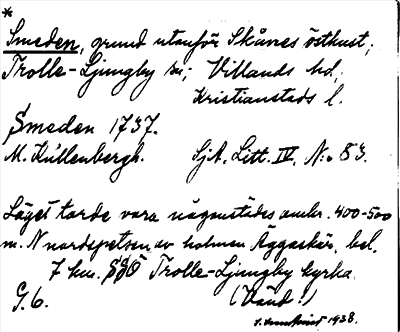 *
Smeden, grund utanför Skånes östkust;
Trolle-Ljungby sn; Villands hd,
Kristianstads l.
Smeden 1737.
M. Kullenbergh. SjA. Litt. IV, No 83.
Läget torde vara någonstädes omkr. 400-500
m. N nordspetsen av holmen Äggaskär, bel.
7 km. SSÖ Trolle-Ljungby kyrka.
G. 6. (Vänd!)
1938.